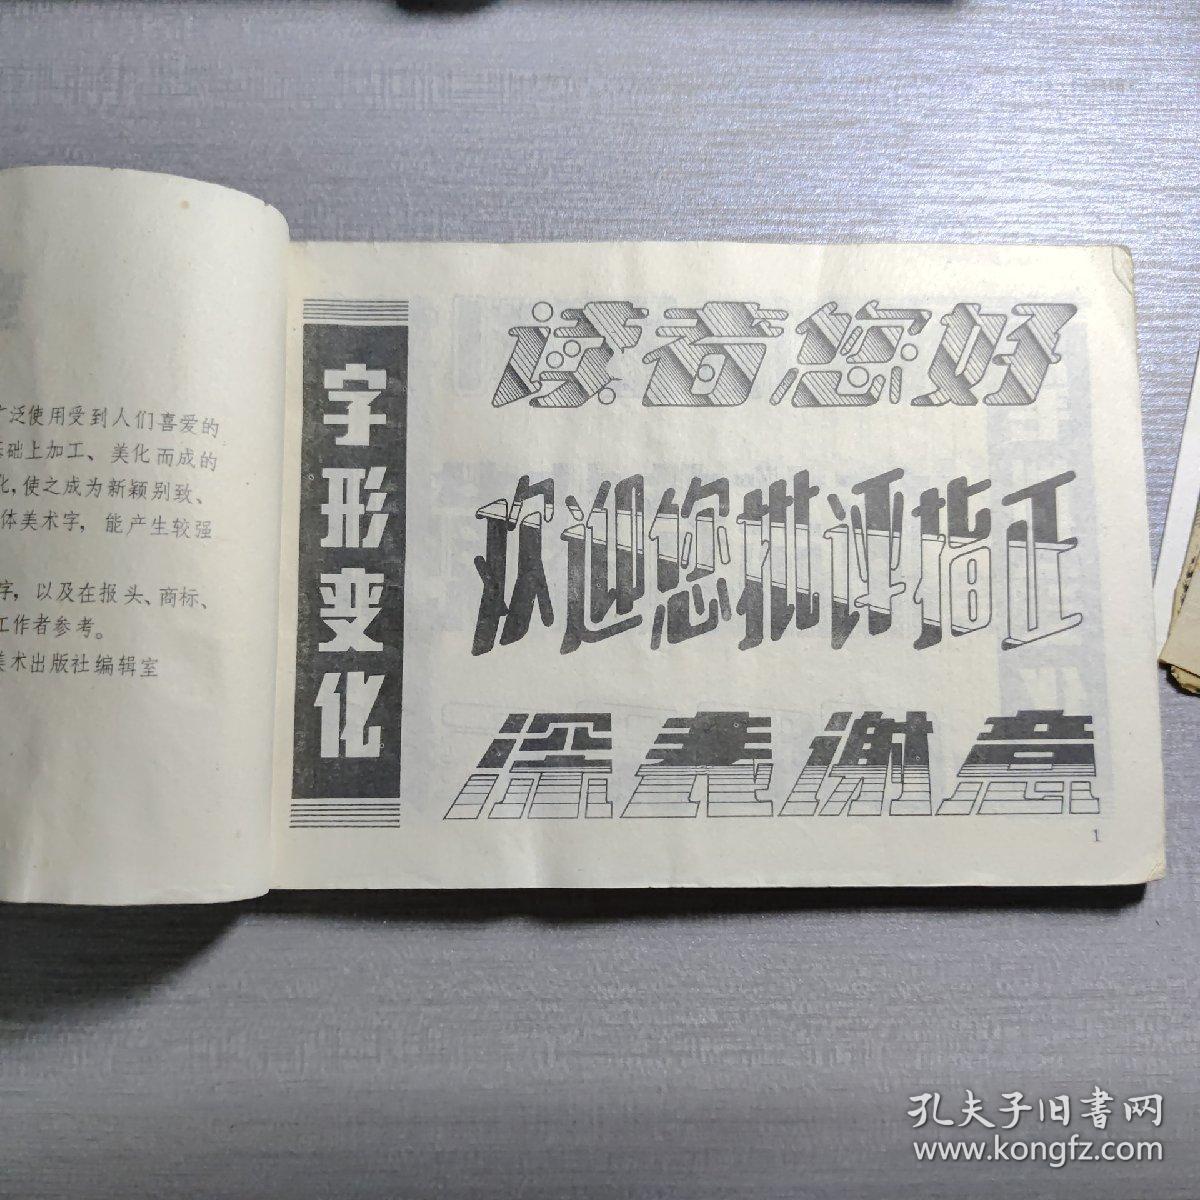 广泛使用受到人们喜爱的
基础上加工、美化而成的
化,使之成为新颖别致、
体美术字,能产生较强
字,以及在报头、商标、
工作者参考。
美术出版社编辑室
字形变化
读者您好
欢迎您批评指正
深表谢意
1
孔夫子旧书网
www.kongfz.com